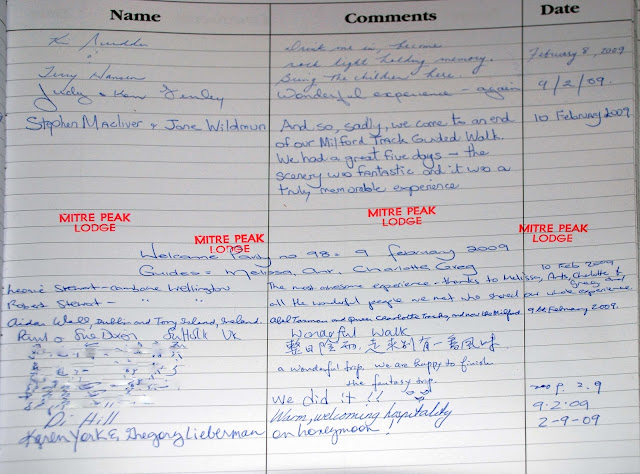 Name Comments Date
Drink me in, become
rock light holding memory. February 8, 2009
Terry Hansen Bring the children here.
Judy & Ken Fenley Wonderful experience - again 9/2/09.
Stephen Macliver & Jane Wildmun And so, sadly, we come to an end 10 February 2009
of our Milford Track Guided Walk.
We had a great five days - the
scenery was fantastic and it was a
truly memorable experience.
MITRE PEAK LODGE
MITRE PEAK LODGE
MITRE PEAK LODGE
MITRE PEAK LODGE
Welcome Party no 98 = 9 february 2009
Guides = Melissa, Charlotte, Greg
Stewart - Wellington The most awesome experience. thanks to Melissa, Arts, Charlotte & Greg, and 10 Feb 2009
Robert Stewart - " " all the wonderful people we met who shared our whole experience.
Aidan Wall, Dublin and Tory Island, Ireland. Abel Tasman and Queen Charlotte Tracks, and now the Milford. 9th February 2009.
Paul & Sue Dixon Suffolk UK Wonderful Walk
整日陰雨, 走來別有一番風味
a wonderful trip, we are happy to finish
the fantasy trip.
2009. 2. 9
We did it!!
Di Hill Warm, welcoming hospitality 9.2.09
Karen York & Gregory Lieberman on honeymoon! 2-9-09